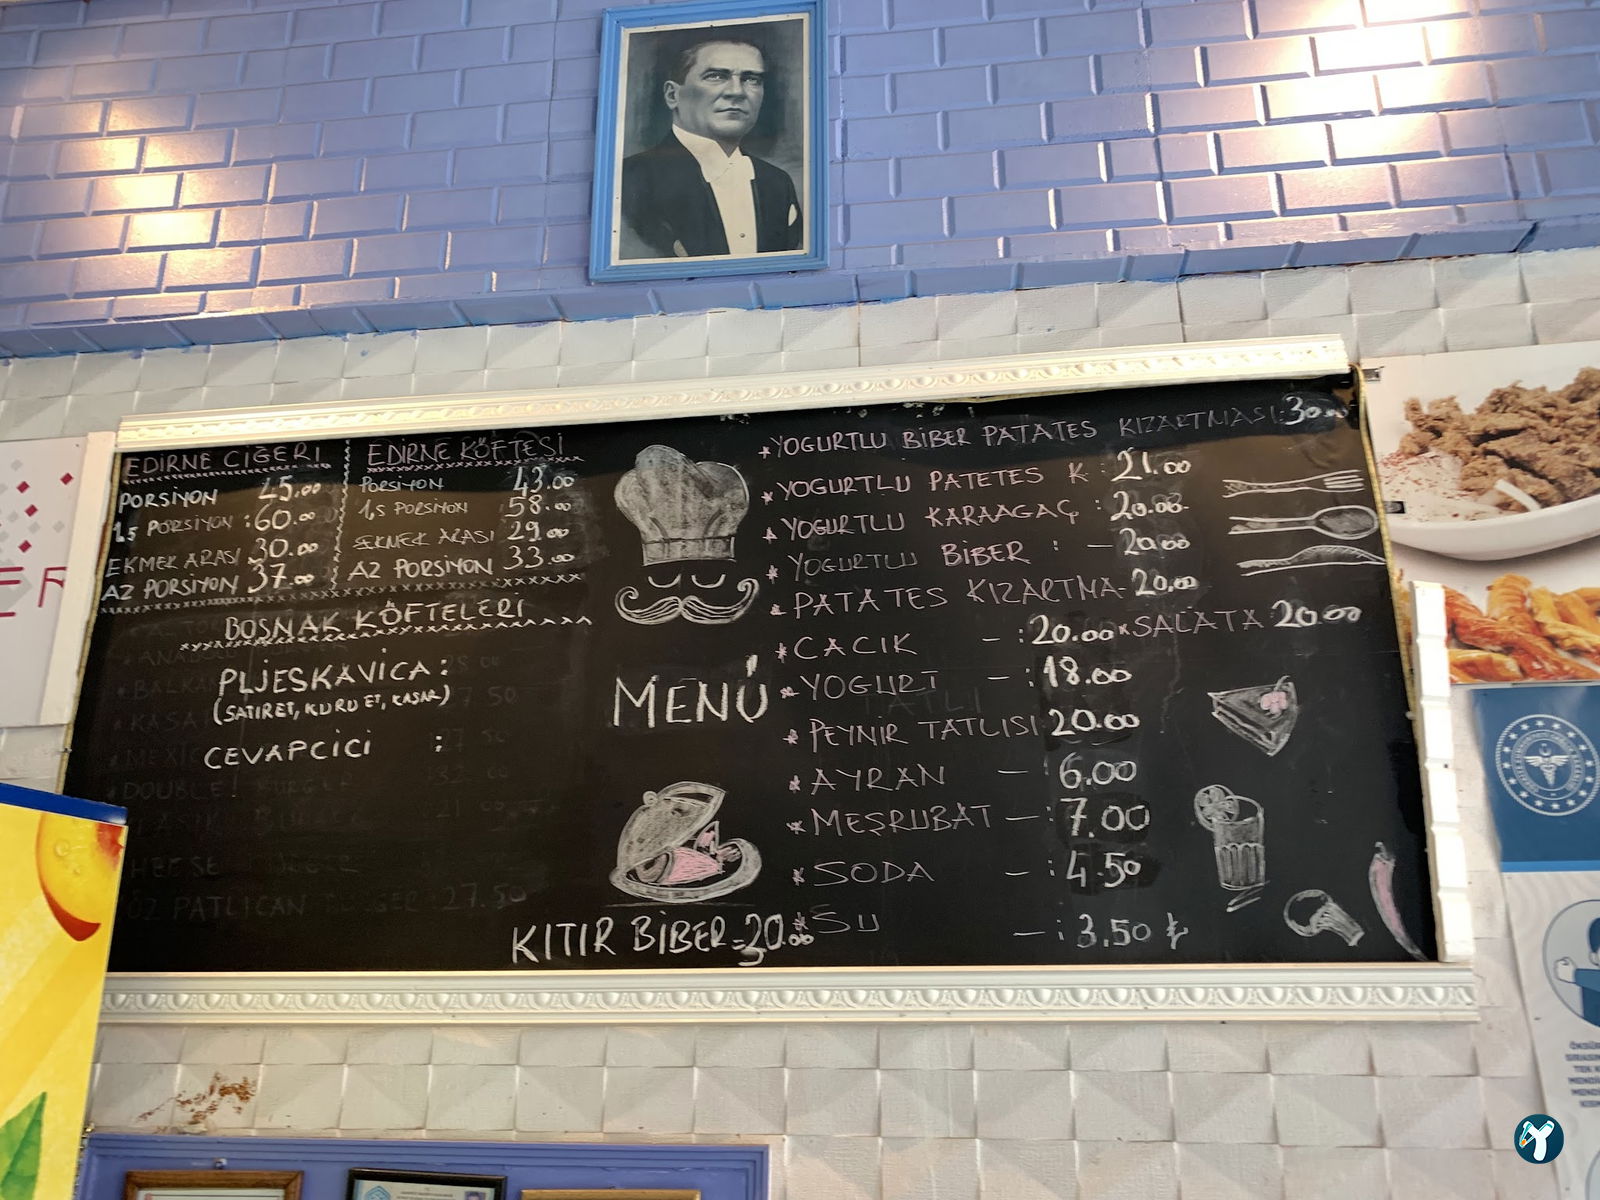 EDİRNE CİĞERİ
PORSİYON 45.00
1,5 PORSİYON : 60.00
EKMEK ARASI 30.00
AZ PORSİYON 37.00
EDİRNE KÖFTESİ
PORSİYON 43.00
1,5 PORSİYON 58.00
EKMEK ARASI 29.00
AZ PORSİYON 33.00
BOŞNAK KÖFTELERİ
PLJESKAVİCA :
(SATIRET, KURU ET, KAŞAR)
CEVAPCİCİ :
MENÜ
KITIR BİBER = 20.00
*YOGURTLU BİBER PATATES KIZARTMASI: 30.00
*YOGURTLU PATETES K : 21.00
*YOGURTLU KARAAGAÇ : 20.00
*YOGURTLU BİBER : - 20.00
*PATATES KIZARTMA- 20.00
*CACIK - : 20.00 *SALATA 20.00
*YOGURT - : 18.00
*PEYNİR TATLISI 20.00
*AYRAN - : 6.00
*MEŞRUBAT - : 7.00
*SODA - : 4.50
*SU - : 3.50 ₺
DOUBLE! BURGER
PATLICAN BURGER : 27.50
ER